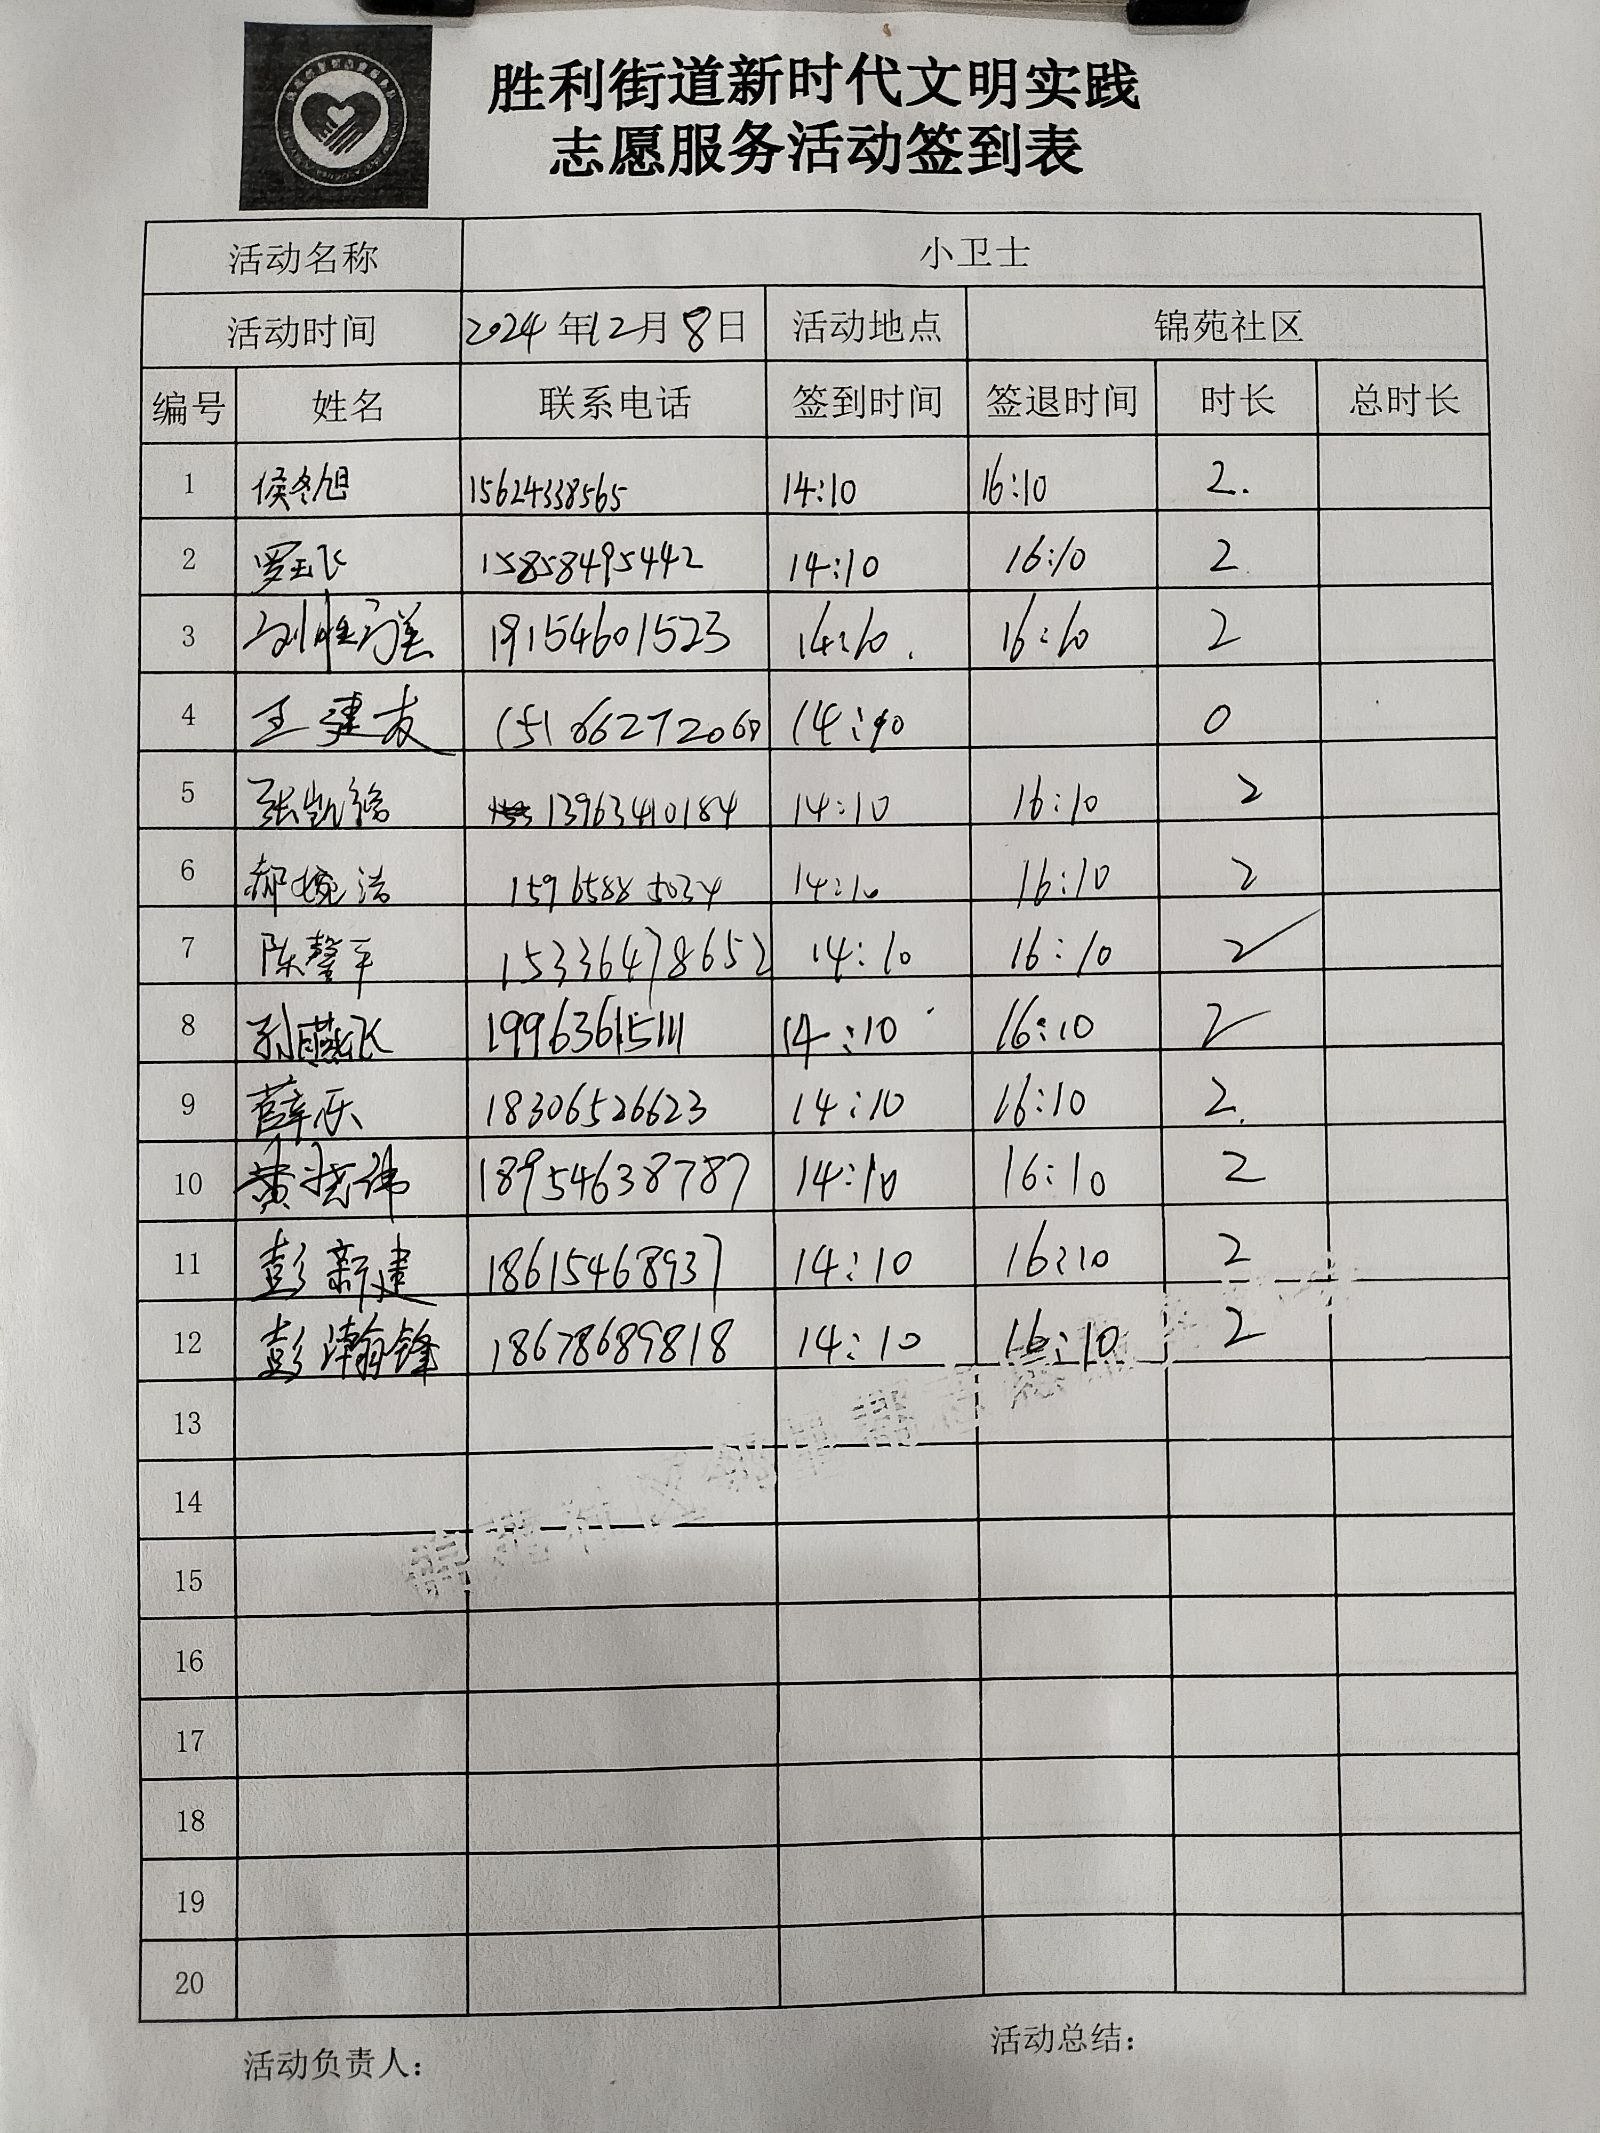 胜利街道新时代文明实践
志愿服务活动签到表
活动名称 小卫士
活动时间 2024年12月8日 活动地点 锦苑社区
编号 姓名 联系电话 签到时间 签退时间 时长 总时长
1 侯冬旭 15624338565 14:10 16:10 2.
2 罗玉飞 15858495442 14:10 16:10 2
3 19154601523 14:10. 16:10 2
4 王建友 15166272060 14:10 0
5 张凯 13963410184 14:10 16:10 2
6 郝婉洁 15965885034 14:10 16:10 2
7 陈馨平 15336478652 14:10 16:10 2
8 孙燕飞 19963615111 14:10 16:10 2
9 薛乐 18306526623 14:10 16:10 2.
10 黄晓伟 18954638787 14:10 16:10 2
11 彭新建 18615468937 14:10 16:10 2
12 彭瀚锋 18678689818 14:10 16:10 2
13
14
15
16
17
18
19
20
活动负责人： 活动总结：